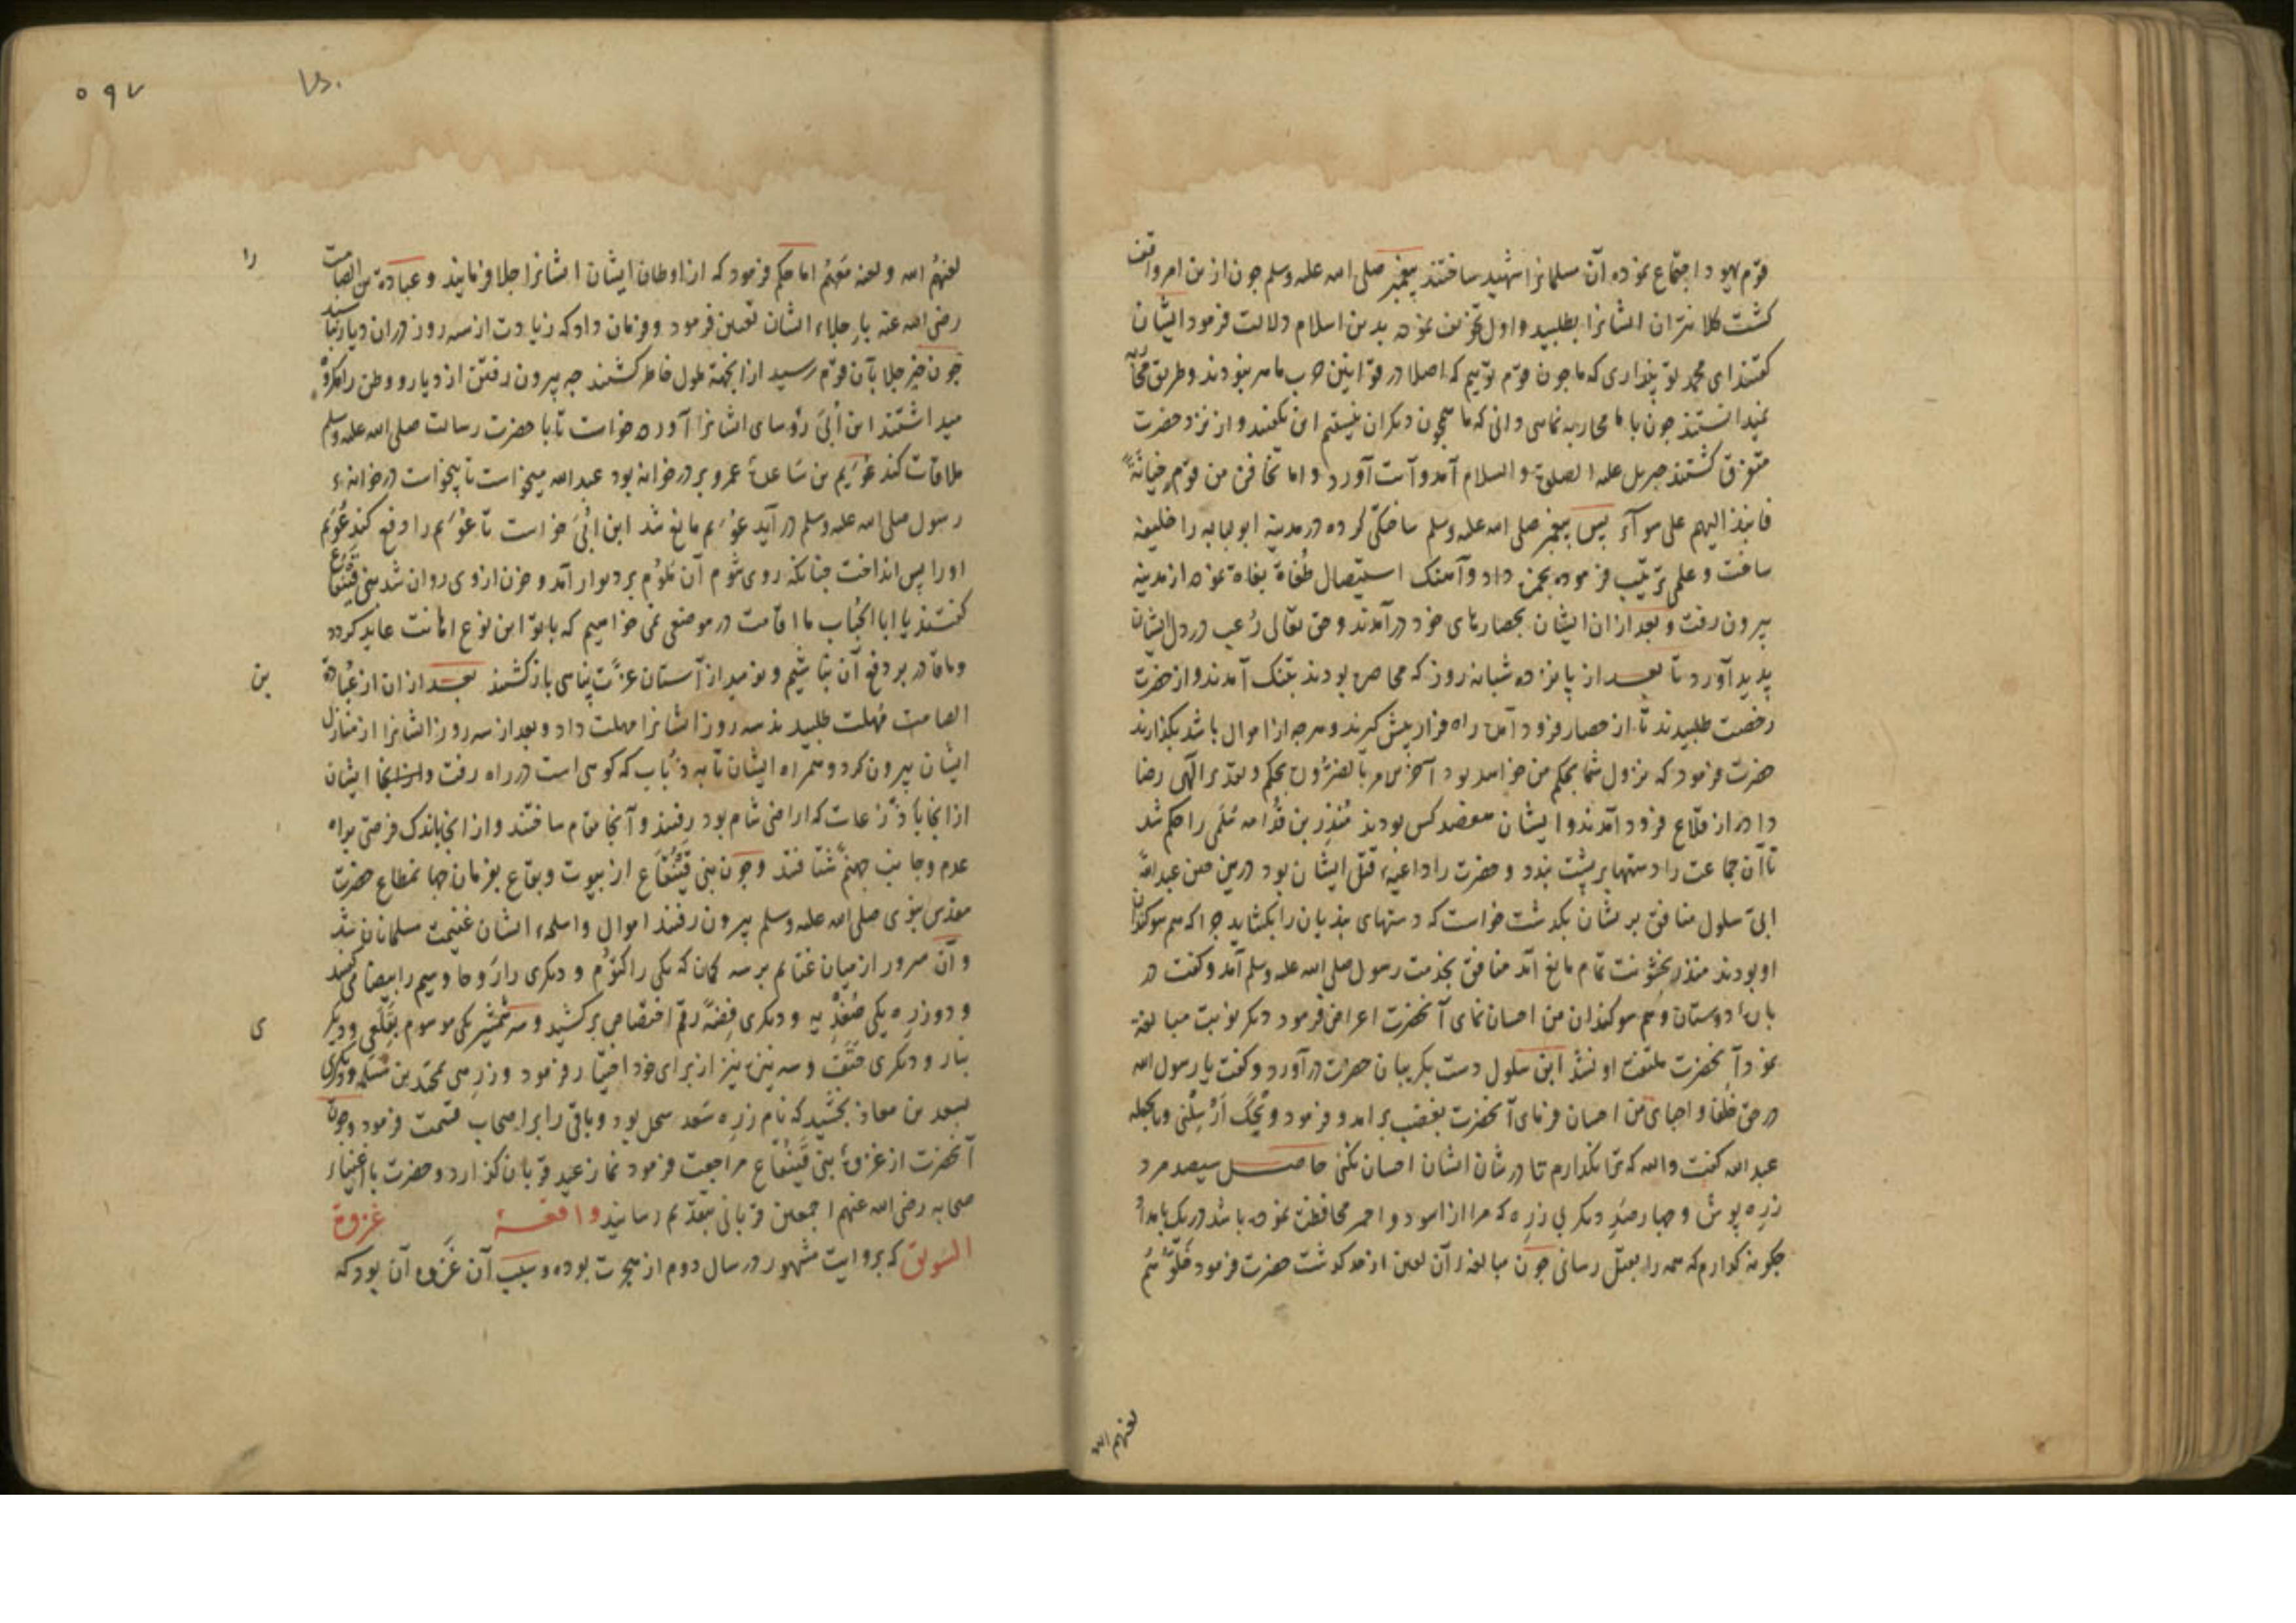 قوم یهود اجتماع نموده آن مسلمانرا شهید ساختند پیغمبر صلی الله علیه وسلم چون ازین امر واقف
کشت کلانتران ایشانرا بطلبید و اول تخویف نموده بدین اسلام دلالت فرمود ایشان
کفتند ای محمد تو پنداری که ما چون قوم توییم که اصلا در قوانین حرب ماهر نبودند و طریق محاربه
نمیدانستند چون با ما محاربه نمایی دانی که ما همچون دیکران نیستیم این بکفتند و از نزد حضرت
متفرق کشتند جبریل علیه الصلوة و السلام آمد و آیت آورد و اما تخافن من قوم خیانةً
فانبذ الیهم علی سوآء پس پیغمبر صلی الله علیه وسلم ساختکی کرده در مدینه ابو لبابه را خلیفه
ساخت و علمی ترتیب فرموده بحمزه داد و آهنک استیصال طُغاة بغاة نموده از مدینه
بیرون رفت و بعد ازان ایشان بحصارهای خود درآمدند و حق تعالی رُعب در دل ایشان
پدید آورد تا بعد از پانزده شبانه روز که محاصره بودند بتنک آمدند و از حضرت
رخصت طلبیدند تا از حصار فرود آمده راه فرار پیش کیرند و هرچه از اموال باشد بکذارند
حضرت فرمود که نزول شما بحکم من خواهد بود آخر الامر بالضرورة بحکم و تقدیر الهی رضا
داده از قلاع فرود آمدند و ایشان هفصد کس بودند مُنذِر بن قُدامه سُلَمی را حکم شد
تا آن جماعت را دستها بر پشت بندد و حضرت را داعیهٔ قتل ایشان بود درین حین عبدالله
ابیّ سلول منافق بریشان بکذشت خواست که دستهای بندیان را بکشاید چرا که هم سوکندان
او بودند منذر بخشونت تمام مانع آمد منافق بخدمت رسول صلی الله علیه وسلم آمد و کفت در
بارهٔ دوستان و هم سوکندان من احسان نمای آنحضرت اعراض فرمود دیکر نوبت مبالغه
نمود آنحضرت ملتفت او نشد ابن سلول دست بکریبان حضرت درآورد و کفت یا رسول الله
در حق خلفا و احبای من احسان فرمای آنحضرت بغضب برامد و فرمود ویْحَکَ اَرْسِلْنی وبالجمله
عبدالله کفت والله که نکذارم تا در شان ایشان احسان نکنی حاصل سیصد مرد
زرِه پوش و چهارصدِ دیکر بی زرِه که مرا از اسود و احمر محافظت نموده باشد در یک بامداد
چکونه کذارم که همه را بقتل رسانی چون مبالغهٔ آن لعین از حد کذشت حضرت فرمود خَلّوهُم
لعنهم الله
۵۹۷
لعنهُم الله و لعنه مَعَهُم اما حکم فرمود که از اوطان ایشان ایشانرا جلا فرمایند و عبادة بن الصامت
را
رضی الله عنه بارِ جلاء ایشان تعیین فرمود و فرمان داد که زیادت از سه روز دران دیار نباشید
چون خبر جلا بآن قوم رسید ازانجهة ملول خاطر کشتند چه بیرون رفتن از دیار و وطن را مکروه
میداشتند ابن اُبَیّ رؤسای ایشانرا آورده خواست تا با حضرت رسالت صلی الله علیه وسلم
ملاقات کند عُوَیم بن ساعدهٔ عمرو بر در خوانه بود عبدالله میخواست تا بیخواست در خوانهٔ
رسول صلی الله علیه وسلم درآید عویم مانع شد ابن اُبَیّ خواست تا عویم را دفع کند عُوَیم
اورا پس انداخت چنانکه روی شوم آن مَلُوم بر دیوار آمد و خون ازوی روان شد بنی قَینُقاع
کفتند یا ابا الحُباب ما اقامت در موضعی نمی خواهیم که با تو این نوع اهانت عاید کردد
و ما قادر بر دفع آن نباشیم و نومید از آستان عزّت پناهی بازکشتند بعد ازان از عُبادة
بن
الصامت مُهلت طلبیدند سه روز ایشانرا مهلت داد و بعد از سه روز ایشانرا از منازل
ایشان بیرون کرد و همراه ایشان تا به ذُباب که کوهی است در راه رفت و ازانجا ایشان
ازانجا باذرعات که اراضی شام بود رفتند و آنجا مقام ساختند و ازانجا باندک فرصتی براه
عدم و جانب جهنّم شتافتند و چون بنی قَینُقاع از بیوت و بقاع بفرمان جهان مطاع حضرت
مقدس نبوی صلی الله علیه وسلم بیرون رفتند اموال و اسلحهٔ ایشان غنیمت مسلمانان شد
و آن سرور از میان غنایم بر سه کمان که یکی را کتُوم و دیکری را رَوحا و سیم را بیضا می کفتند
و دو زرِه یکی صُغدْیه و دیکری فِضّة رقم اختصاص برکشید و سه شمشیر یکی موسوم بقَلَعی و دیکر
ی
بتّار و دیکری حَتَف و سه نیزه نیز از برای خود اختیار فرمود و زرِهی بمحمد بن مَسلمه و دیکری
بسعد بن معاذ بخشید که نام زرِه سَعد سحل بود و باقی را بر اصحاب قسمت فرمود و چون
آنحضرت از غزوهٔ بنی قَینُقاع مراجعت فرمود نماز عید قربان کزارد و حضرت با اغنیاء
صحابه رضی الله عنهم اجمعین قربانی بتقدیم رسانید واقعهٔ غزوة
السویق که بروایت مشهور در سال دوم از هجرت بوده و سبب آن غَزوه آن بود که